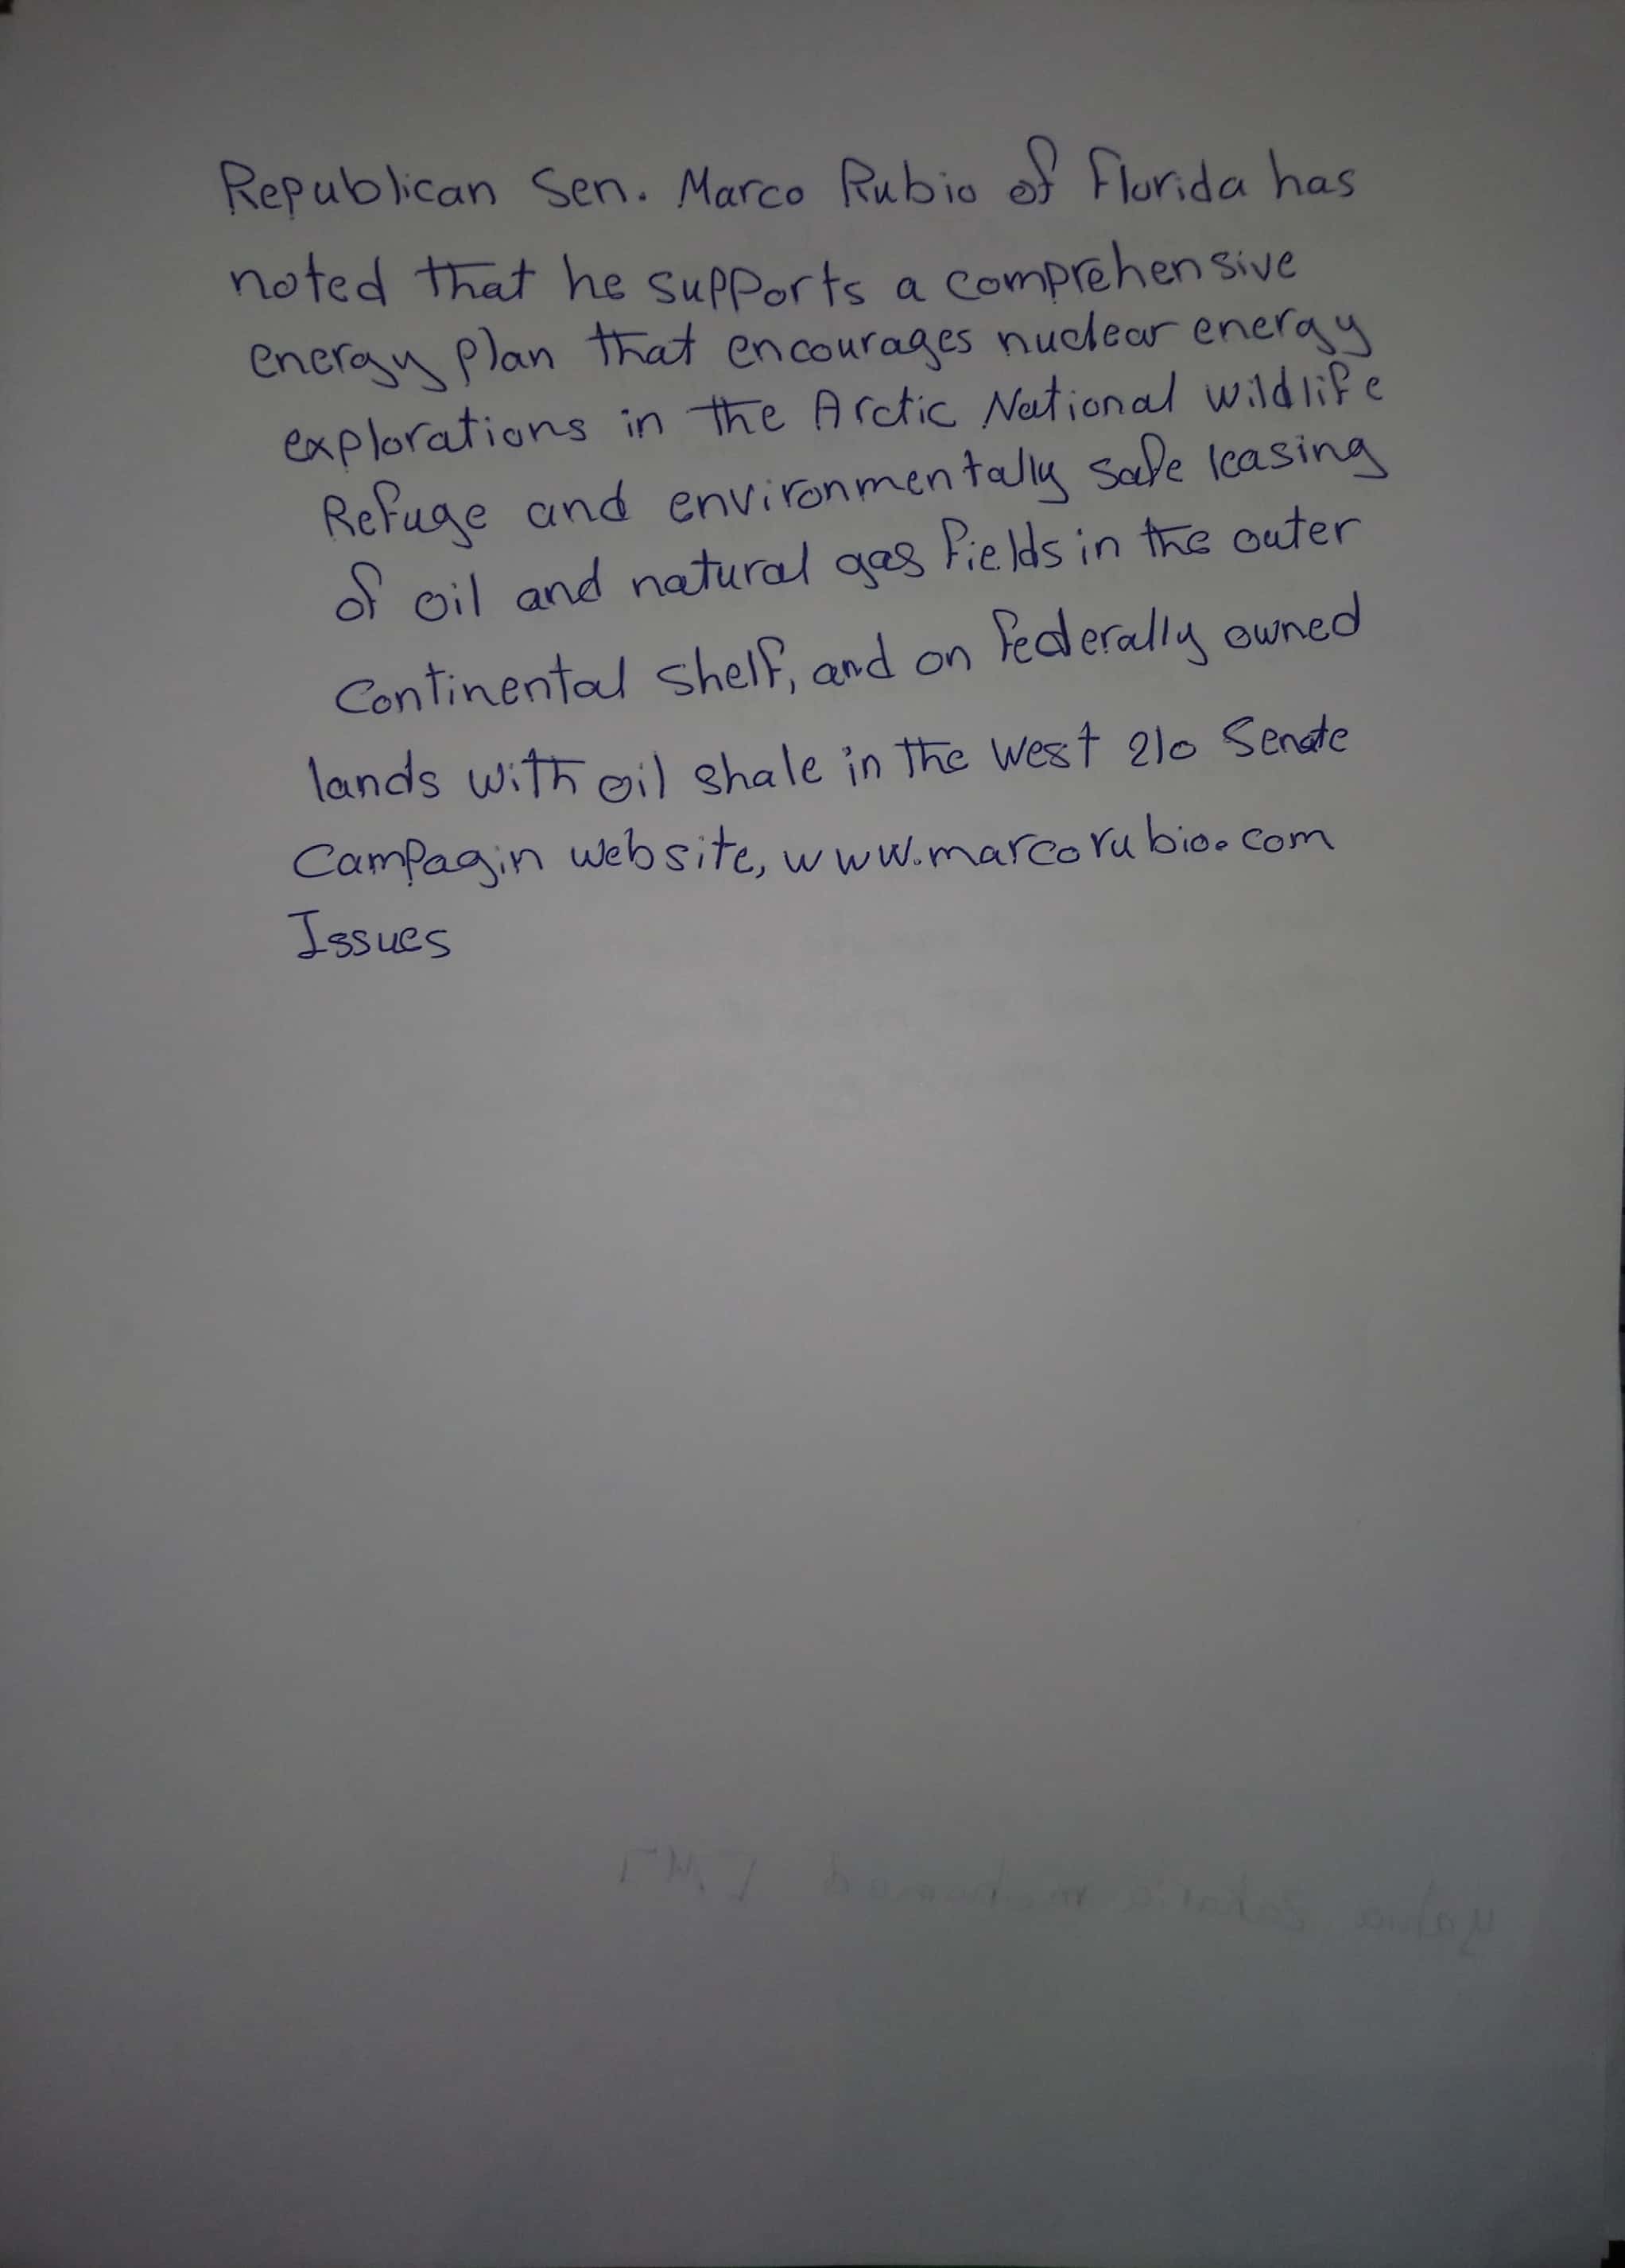 Republican Sen. Marco Rubio of Florida has
noted that he supports a comprehensive
energy plan that encourages nuclear energy
explorations in the Arctic National wildlife
Refuge and environmentally safe leasing
of oil and natural gas fields in the outer
Continental shelf, and on federally owned
lands with oil shale in the west 210 Senate
Campagin website, www.marcorubio.com
Issues